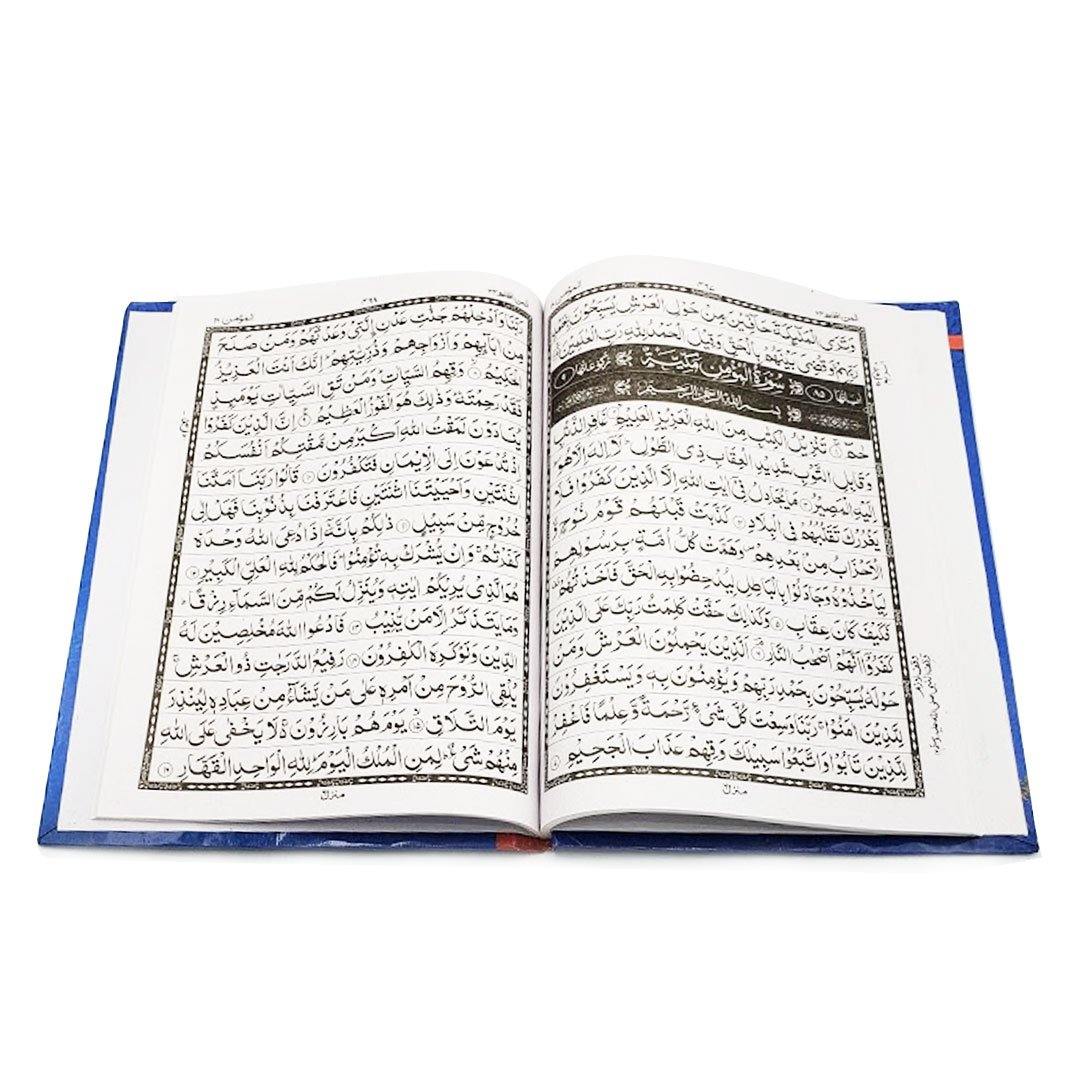 وَتَرَى الْمَلٰٓئِكَةَ حَآفِّيْنَ مِنْ حَوْلِ الْعَرْشِ يُسَبِّحُوْنَ بِحَمْدِ
رَبِّهِمْ وَقُضِيَ بَيْنَهُمْ بِالْحَقِّ وَقِيْلَ الْحَمْدُ لِلّٰهِ رَبِّ الْعٰلَمِيْنَ
اٰيَاتُهَا ٨٥ سُوْرَةُ الْمُؤْمِنِ مَكِّيَّةٌ رُكُوْعَاتُهَا ٩
بِسْمِ اللّٰهِ الرَّحْمٰنِ الرَّحِيْمِ
حٰمٓ ١ تَنْزِيْلُ الْكِتٰبِ مِنَ اللّٰهِ الْعَزِيْزِ الْعَلِيْمِ ٢ غَافِرِ الذَّنْۢبِ
وَقَابِلِ التَّوْبِ شَدِيْدِ الْعِقَابِ ذِي الطَّوْلِ لَآ اِلٰهَ اِلَّا هُوَ
اِلَيْهِ الْمَصِيْرُ ٣ مَا يُجَادِلُ فِيْٓ اٰيٰتِ اللّٰهِ اِلَّا الَّذِيْنَ كَفَرُوْا فَلَا
يَغْرُرْكَ تَقَلُّبُهُمْ فِي الْبِلَادِ ٤ كَذَّبَتْ قَبْلَهُمْ قَوْمُ نُوْحٍ وَّ
الْاَحْزَابُ مِنْۢ بَعْدِهِمْ وَهَمَّتْ كُلُّ اُمَّةٍۭ بِرَسُوْلِهِمْ
لِيَاْخُذُوْهُ وَجَادَلُوْا بِالْبَاطِلِ لِيُدْحِضُوْا بِهِ الْحَقَّ فَاَخَذْتُهُمْ
فَكَيْفَ كَانَ عِقَابِ ٥ وَكَذٰلِكَ حَقَّتْ كَلِمَتُ رَبِّكَ عَلَى الَّذِيْنَ
كَفَرُوْٓا اَنَّهُمْ اَصْحٰبُ النَّارِ ٦ اَلَّذِيْنَ يَحْمِلُوْنَ الْعَرْشَ وَمَنْ
حَوْلَهٗ يُسَبِّحُوْنَ بِحَمْدِ رَبِّهِمْ وَيُؤْمِنُوْنَ بِهٖ وَيَسْتَغْفِرُوْنَ
لِلَّذِيْنَ اٰمَنُوْا رَبَّنَا وَسِعْتَ كُلَّ شَيْءٍ رَّحْمَةً وَّعِلْمًا فَاغْفِرْ
لِلَّذِيْنَ تَابُوْا وَاتَّبَعُوْا سَبِيْلَكَ وَقِهِمْ عَذَابَ الْجَحِيْمِ ٧
منزل
المؤمن ٤٠
رَبَّنَا وَاَدْخِلْهُمْ جَنّٰتِ عَدْنِ ۨالَّتِيْ وَعَدْتَّهُمْ وَمَنْ صَلَحَ
مِنْ اٰبَآئِهِمْ وَاَزْوَاجِهِمْ وَذُرِّيّٰتِهِمْ اِنَّكَ اَنْتَ الْعَزِيْزُ
الْحَكِيْمُ ٨ وَقِهِمُ السَّيِّاٰتِ وَمَنْ تَقِ السَّيِّاٰتِ يَوْمَئِذٍ
فَقَدْ رَحِمْتَهٗ وَذٰلِكَ هُوَ الْفَوْزُ الْعَظِيْمُ ٩ اِنَّ الَّذِيْنَ كَفَرُوْا
يُنَادَوْنَ لَمَقْتُ اللّٰهِ اَكْبَرُ مِنْ مَّقْتِكُمْ اَنْفُسَكُمْ
اِذْ تُدْعَوْنَ اِلَى الْاِيْمَانِ فَتَكْفُرُوْنَ ١٠ قَالُوْا رَبَّنَآ اَمَتَّنَا
اثْنَتَيْنِ وَاَحْيَيْتَنَا اثْنَتَيْنِ فَاعْتَرَفْنَا بِذُنُوْبِنَا فَهَلْ اِلٰى
خُرُوْجٍ مِّنْ سَبِيْلٍ ١١ ذٰلِكُمْ بِاَنَّهٗٓ اِذَا دُعِيَ اللّٰهُ وَحْدَهٗ
كَفَرْتُمْ وَاِنْ يُّشْرَكْ بِهٖ تُؤْمِنُوْا فَالْحُكْمُ لِلّٰهِ الْعَلِيِّ الْكَبِيْرِ ١٢
هُوَ الَّذِيْ يُرِيْكُمْ اٰيٰتِهٖ وَيُنَزِّلُ لَكُمْ مِّنَ السَّمَآءِ رِزْقًا
وَمَا يَتَذَكَّرُ اِلَّا مَنْ يُّنِيْبُ ١٣ فَادْعُوا اللّٰهَ مُخْلِصِيْنَ لَهُ
الدِّيْنَ وَلَوْ كَرِهَ الْكٰفِرُوْنَ ١٤ رَفِيْعُ الدَّرَجٰتِ ذُو الْعَرْشِ
يُلْقِي الرُّوْحَ مِنْ اَمْرِهٖ عَلٰى مَنْ يَّشَآءُ مِنْ عِبَادِهٖ لِيُنْذِرَ
يَوْمَ التَّلَاقِ ١٥ يَوْمَ هُمْ بَارِزُوْنَ لَا يَخْفٰى عَلَى اللّٰهِ
مِنْهُمْ شَيْءٌ لِمَنِ الْمُلْكُ الْيَوْمَ لِلّٰهِ الْوَاحِدِ الْقَهَّارِ ١٦
منزل